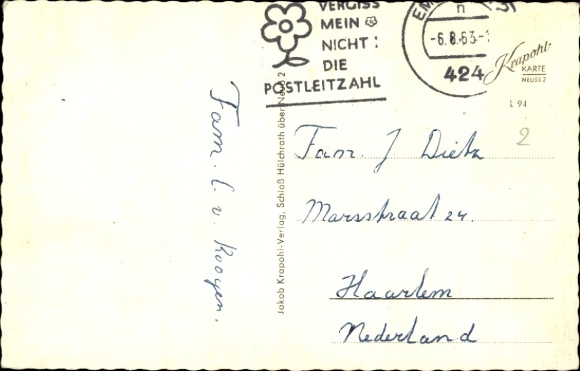 VERGISS
MEIN
NICHT!
DIE
POSTLEITZAHL
EM
-6.8.63-1
424
Krapohl-
KARTE
NEUSS 2
L 94
2
Jakob Krapohl-Verlag, Schloß Hülchrath über Neuß 2
Fam. C. v. Rooyen.
Fam. J Dietz
Marsstraat 24.
Haarlem
Nederland